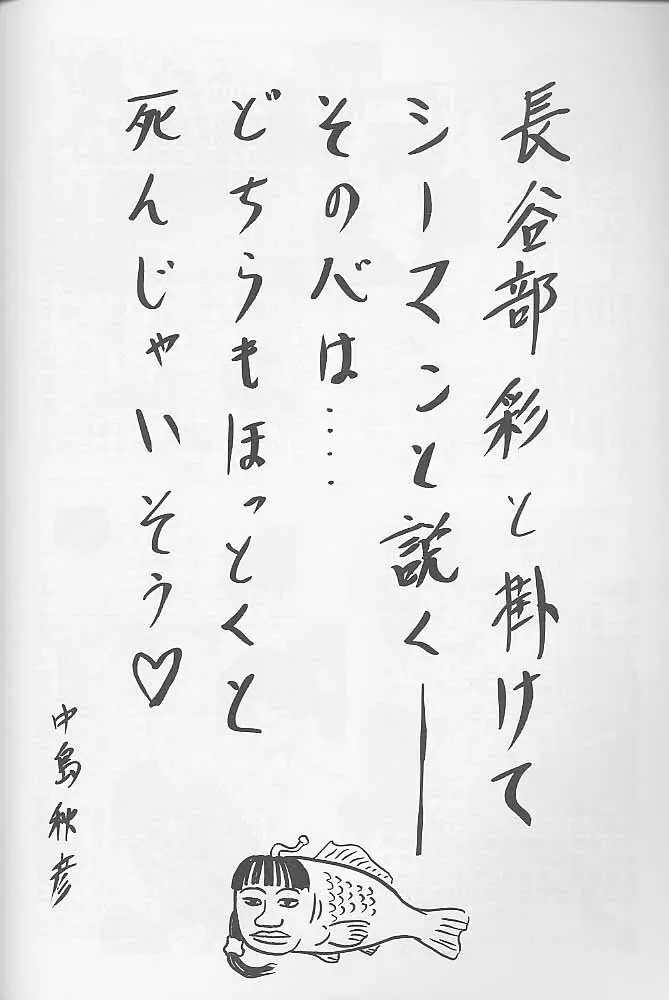 長谷部彩と掛けて
シーマンと説く――
その心は……
どちらもほっとくと
死んじゃいそう♡
中島秋彦